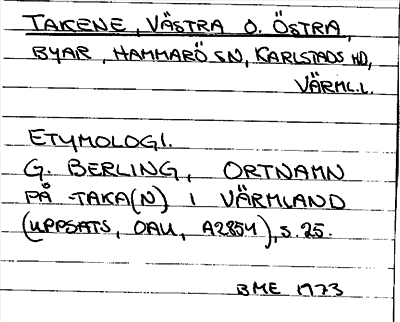 TAKENE, VÄSTRA O. ÖSTRA,
BYAR, HAMMARÖ SN, KARLSTADS HD,
VÄRML.L.
ETYMOLOGI.
G. BERLING, ORTNAMN
PÅ -TAKA(N) I VÄRMLAND
(UPPSATS, OAU, A2854), S. 25.
BME 1973